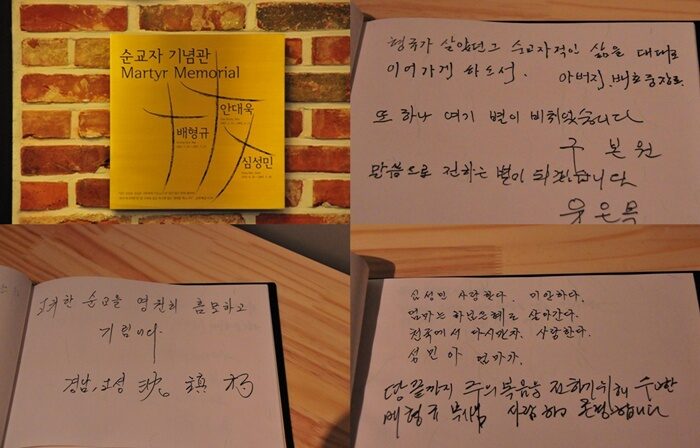 순교자 기념관
Martyr Memorial
안대욱
배형규
심성민
형규가 살았던 그 순교자적인 삶을 대대로
이어가게 하소서. 아버지. 배호중장로
또 하나 여기 별이 비취었습니다
구 본 원
말씀으로 전하는 별이 되겠습니다
유은목
순교를 영원히 흠모하고
기립니다
경남, 고성 沈 鎭 杓
심성민 사랑한다. 미안하다.
엄마는 하나님은혜로 살아간다.
천국에서 다시만나자. 사랑한다.
성민아 엄마가.
땅끝까지 주의 복음을 전하기위해 수고한
배형규 목사님 사랑하고 존경합니다